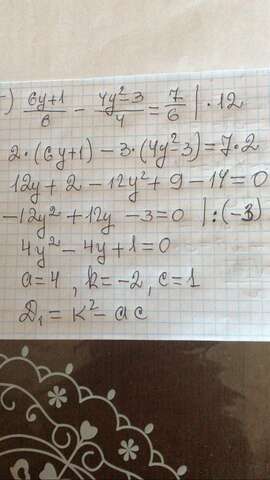 -) (6y+1)/6 - (4y²-3)/4 = 7/6 | · 12
2·(6y+1) - 3·(4y²-3) = 7·2
12y + 2 - 12y² + 9 - 14 = 0
-12y² + 12y - 3 = 0 | : (-3)
4y² - 4y + 1 = 0
a = 4 , k = -2 , c = 1
D₁ = k² - ac